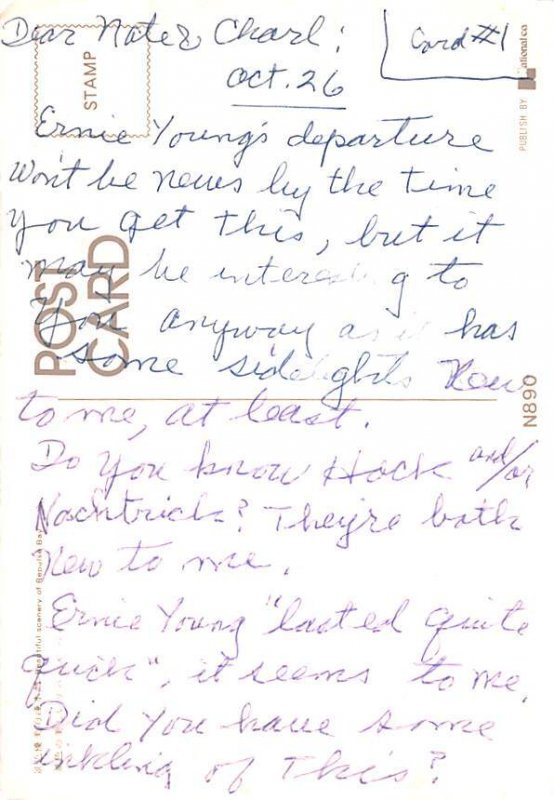 Dear Nate & Charl:
Card #1
Oct. 26
STAMP
PUBLISH BY national co
Ernie Young's departure
Won't be news by the time
you get this, but it
may be interesting to
you anyway as it has
some sidelights New
to me, at least.
POST CARD
N890
Do you know Hack and/or
Nachtrick? They're both
New to me.
Ernie Young "lasted quite
quick", it seems to me.
Did you have some
inkling of this?
beautiful scenery of Repulse Bay